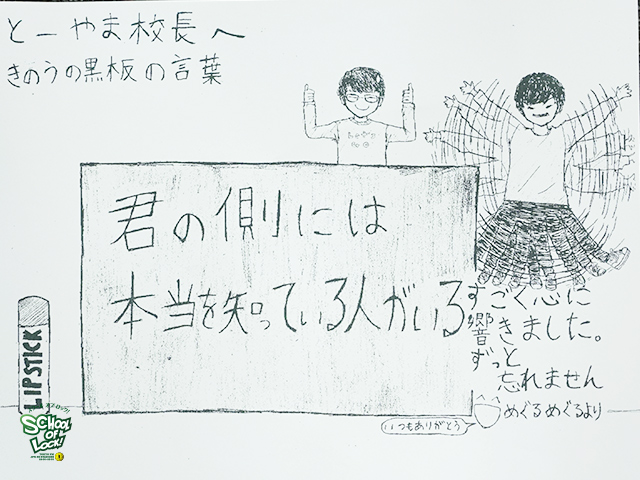 とーやま校長へ
きのうの黒板の言葉
君の側には
本当を知っている人がいる
すごく心に
響きました。
ずっと
忘れません
めぐるめぐるより
いつもありがとう
LIPSTICK
SCHOOL
OF
LOCK!